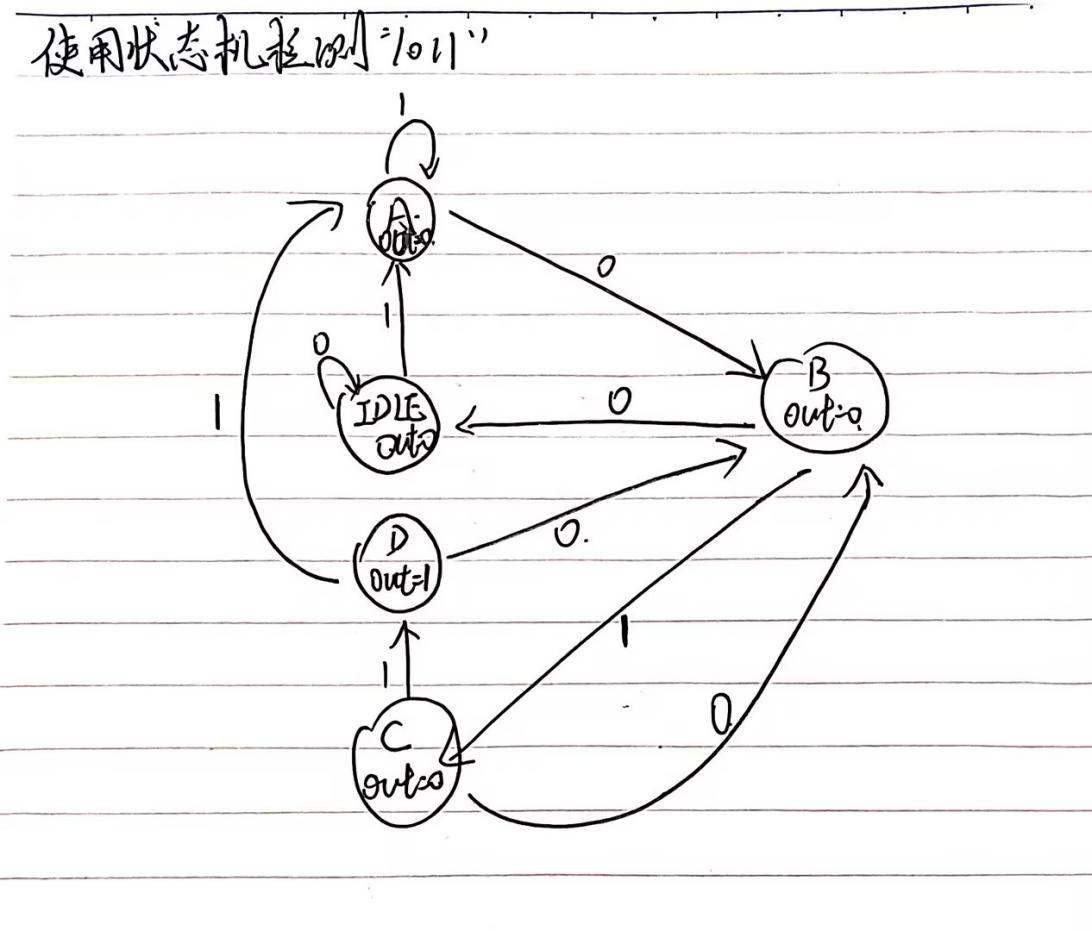 使用状态机检测"1011"
1
A
out=0
0
1
0
IDLE
out=0
0
B
out=0
1
D
out=1
0
1
1
C
out=0
0